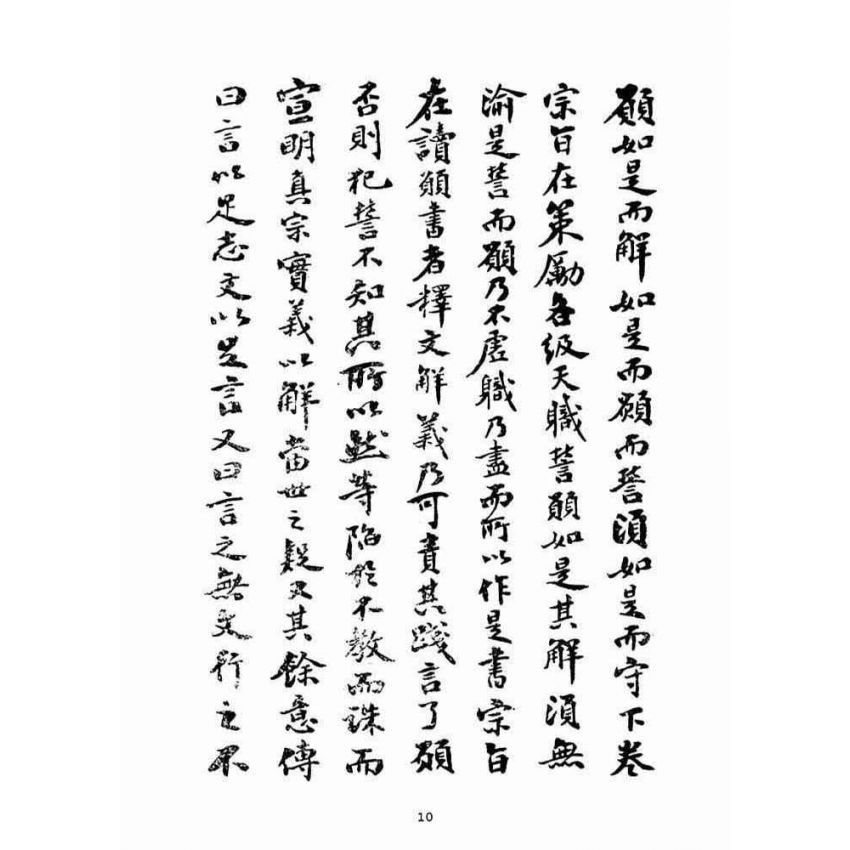 願如是而解如是而願而誓須如是而守下卷
宗旨在策勵各級天職誓願如是其解須無
渝是誓而願乃不虛職乃盡而所以作是書宗旨
在讀願書者釋文解義乃可責其踐言了願
否則犯誓不知其所以然等陷於不教而誅而
宣明真宗實義以解當世之疑及其餘意傳
曰言以足志文以足言又曰言之無文行之不
10